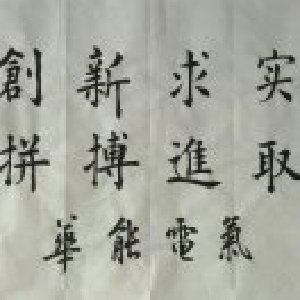 創新求实
拼搏進取
華能電氣